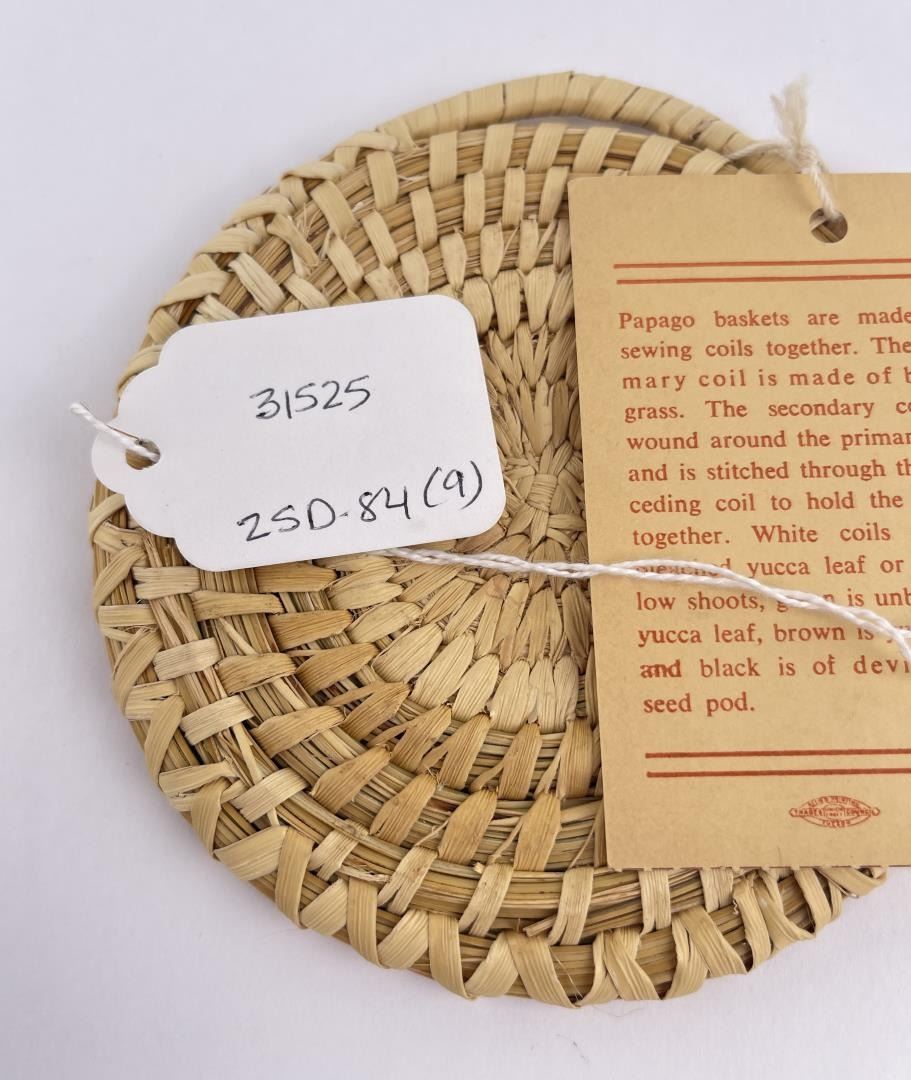 31525
2SD-84(9)
Papago baskets are made
sewing coils together. The
mary coil is made of b
grass. The secondary co
wound around the primar
and is stitched through th
ceding coil to hold the
together. White coils
bleached yucca leaf or
low shoots, green is unb
yucca leaf, brown is
and black is of devi
seed pod.